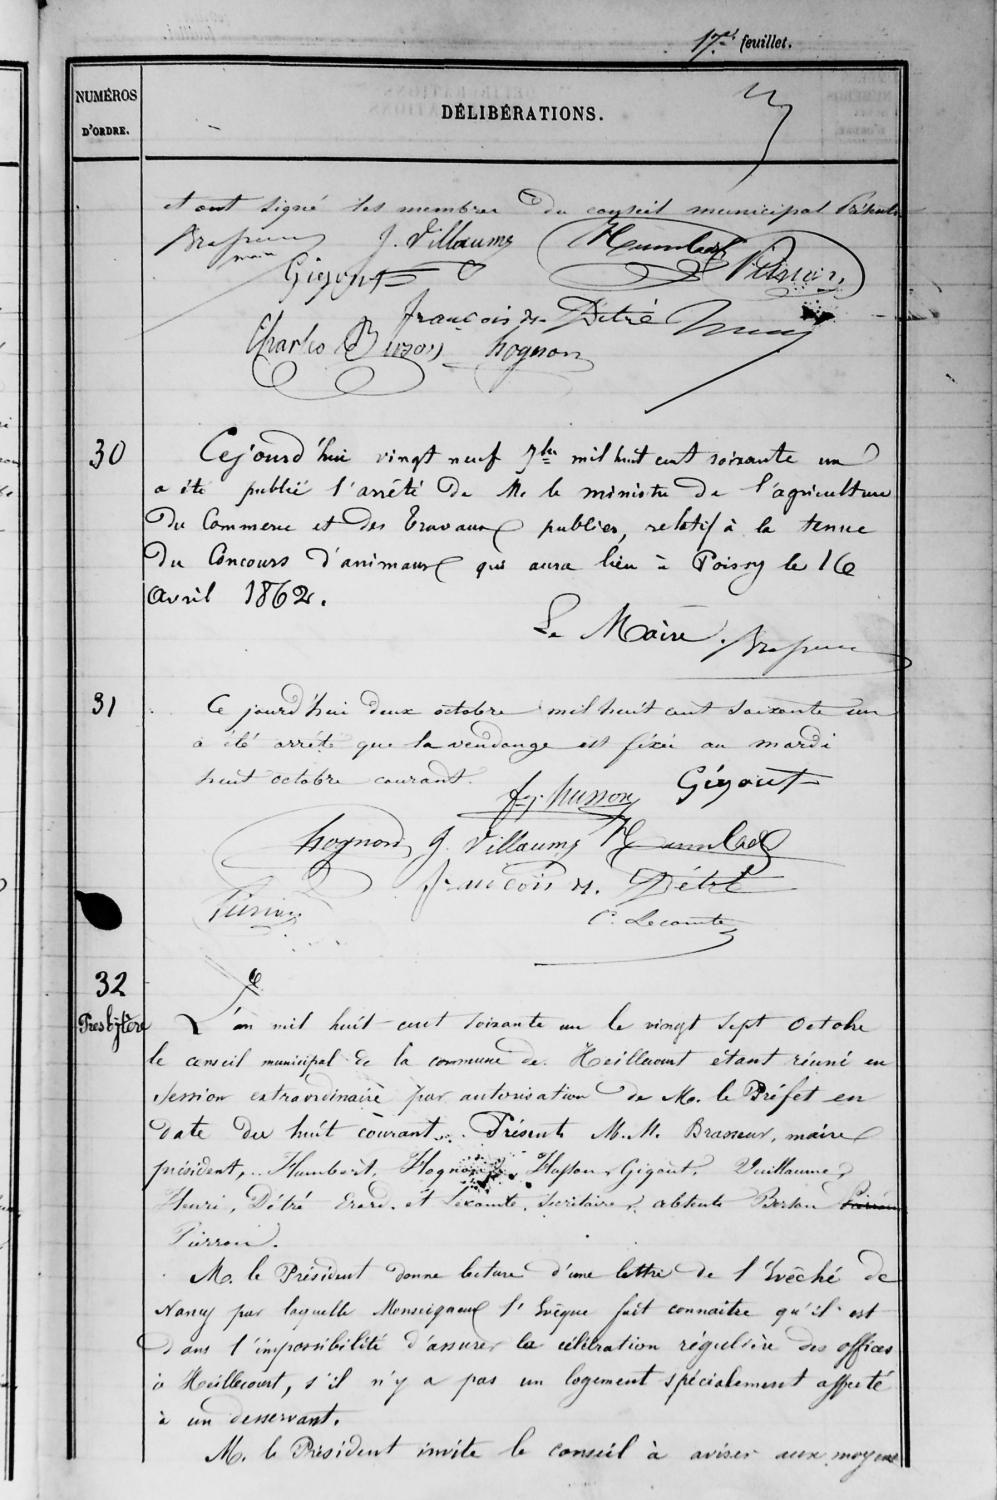 17e feuillet.
NUMÉROS
D'ORDRE.
DÉLIBÉRATIONS.
et ont signé les membres du conseil municipal Présents
J. Villaume Humbert
Gigout Pierson
françois D. Détré
Charles Buzon hognon
30
Cejourd'hui vingt neuf 7bre mil huit cent soixante un
a été publié l'arrêté de M. le ministre de l'agriculture
du Commerce et des travaux publics, relatif à la tenue
du Concours d'animaux qui aura lieu à Poissy le 16
avril 1862.
Le Maire.
31
Ce jourd'hui deux octobre mil huit cent soixante un
a été arrêté que la vendange est fixée au mardi
huit octobre courant.
husson Gigout
hognon J. Villaume Humbert
françois Détré
C. Lecomte
32
Presbytère
L'an mil huit-cent soixante un le vingt sept octobre
le conseil municipal de la commune de Heillecourt étant réuni en
session extraordinaire par autorisation de M. le Préfet en
date du huit courant. Présents M.M. Brasseur, maire
président, Humbert, Hognon, Husson Gigout, Vuillaume
Henri, Détré Erard. et Lecomte, secrétaire, absents Berson
Pierron.
M. le Président donne lecture d'une lettre de l'Evêché de
Nancy par laquelle Monseigneur l'Evêque fait connaître qu'il est
dans l'impossibilité d'assurer la célébration régulière des offices
à Heillecourt, s'il n'y a pas un logement spécialement affecté
à un desservant.
M. le Président invite le conseil à aviser aux moyens